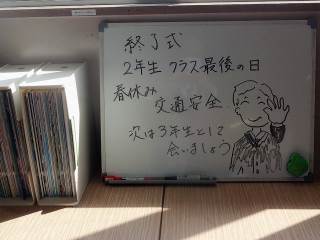 終了式
2年生 クラス最後の日
春休み
交通安全
次は3年生として
会いましょう